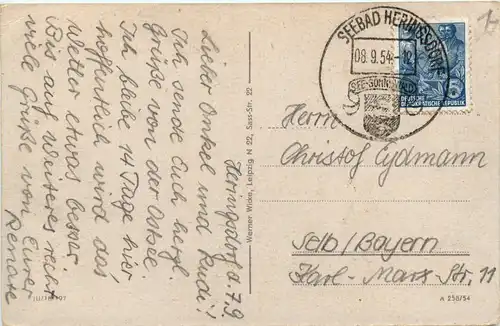 Heringsdorf d. 7.9
Lieber Onkel und Rudi!
Ich sende Euch herzl.
Grüße von der Ostsee.
Ich bleibe 14 Tage hier
hoffentlich wird das
Wetter etwas besser
Bis auf Weiteres recht
viele Grüße von Eurer
Renate
Werner Wicke, Leipzig N 22, Sass-Str. 22
SEEBAD HERINGSDORF
08.9.54-12
DEUTSCHE
DEMOKRATISCHE REPUBLIK
Herrn
Christof Lydmann
Selb/Bayern
Karl-Marx Str. 11
A 258/54